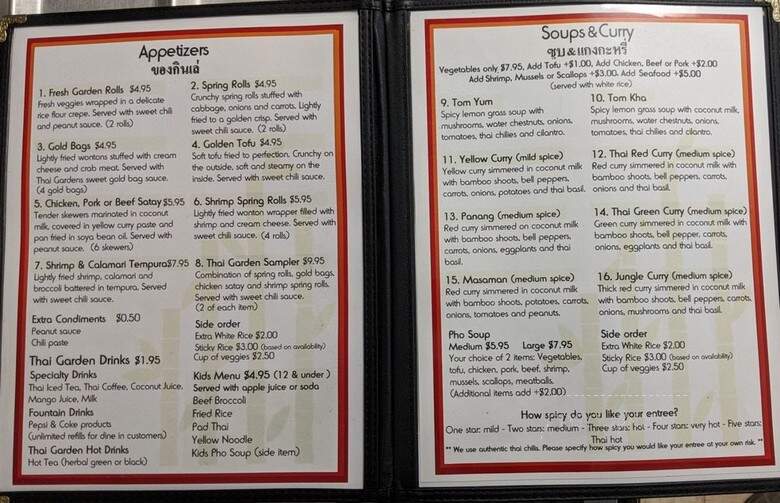 Appetizers
ของกินเล่
1. Fresh Garden Rolls $4.95
Fresh veggies wrapped in a delicate
rice flour crepe. Served with sweet chili
and peanut sauce. (2 rolls)
2. Spring Rolls $4.95
Crunchy spring rolls stuffed with
cabbage, onions and carrots. Lightly
fried to a golden crisp. Served with
sweet chili sauce. (2 rolls)
3. Gold Bags $4.95
Lightly fried wontons stuffed with cream
cheese and crab meat. Served with
Thai Gardens sweet gold bag sauce.
(4 gold bags)
4. Golden Tofu $4.95
Soft tofu fried to perfection. Crunchy on
the outside, soft and steamy on the
inside. Served with sweet chili sauce.
5. Chicken, Pork or Beef Satay $5.95
Tender skewers marinated in coconut
milk, covered in yellow curry paste and
pan fried in soya bean oil. Served with
peanut sauce. (6 skewers)
6. Shrimp Spring Rolls $5.95
Lightly fried wonton wrapper filled with
shrimp and cream cheese. Served with
sweet chili sauce. (4 rolls)
7. Shrimp & Calamari Tempura $7.95
Lightly fried shrimp, calamari and
broccoli battered in tempura. Served
with sweet chili sauce.
8. Thai Garden Sampler $9.95
Combination of spring rolls, gold bags,
chicken satay and shrimp spring rolls.
Served with sweet chili sauce.
(2 of each item)
Extra Condiments $0.50
Peanut sauce
Chili paste
Side order
Extra White Rice $2.00
Sticky Rice $3.00 (based on availability)
Cup of veggies $2.50
Thai Garden Drinks $1.95
Specialty Drinks
Thai Iced Tea, Thai Coffee, Coconut Juice,
Mango Juice, Milk
Fountain Drinks
Pepsi & Coke products
(unlimited refills for dine in customers)
Thai Garden Hot Drinks
Hot Tea (herbal green or black)
Kids Menu $4.95 (12 & under)
Served with apple juice or soda
Beef Broccoli
Fried Rice
Pad Thai
Yellow Noodle
Kids Pho Soup (side item)
Soups & Curry
ซุบ&แกงกะหรี่
Vegetables only $7.95, Add Tofu +$1.00, Add Chicken, Beef or Pork +$2.00
Add Shrimp, Mussels or Scallops +$3.00, Add Seafood +$5.00
(served with white rice)
9. Tom Yum
Spicy lemon grass soup with
mushrooms, water chestnuts, onions,
tomatoes, thai chilies and cilantro.
10. Tom Kha
Spicy lemon grass soup with coconut milk,
mushrooms, water chestnuts, onions,
tomatoes, thai chilies and cilantro.
11. Yellow Curry (mild spice)
Yellow curry simmered in coconut milk
with bamboo shoots, bell peppers,
carrots, onions, potatoes and thai basil.
12. Thai Red Curry (medium spice)
Red curry simmered in coconut milk with
bamboo shoots, bell peppers, carrots,
onions and thai basil.
13. Panang (medium spice)
Red curry simmered on coconut milk
with bamboo shoots, bell peppers,
carrots, onions, eggplants and thai
basil.
14. Thai Green Curry (medium spice)
Green curry simmered in coconut milk with
bamboo shoots, bell pepper, carrots,
onions, eggplants and thai basil.
15. Masaman (medium spice)
Red curry simmered in coconut milk
with bamboo shoots, potatoes, carrots,
onions, tomatoes and peanuts.
16. Jungle Curry (medium spice)
Thick red curry simmered in coconut milk
with bamboo shoots, bell peppers, carrots,
onions, mushrooms and thai basil.
Pho Soup
Medium $5.95 Large $7.95
Your choice of 2 items: Vegetables,
tofu, chicken, pork, beef, shrimp,
mussels, scallops, meatballs.
(Additional items add +$2.00)
Side order
Extra White Rice $2.00
Sticky Rice $3.00 (based on availability)
Cup of veggies $2.50
How spicy do you like your entree?
One star: mild - Two stars: medium - Three stars: hot - Four stars: very hot - Five stars:
Thai hot
** We use authentic thai chilis. Please specify how spicy you would like your entree at your own risk. **